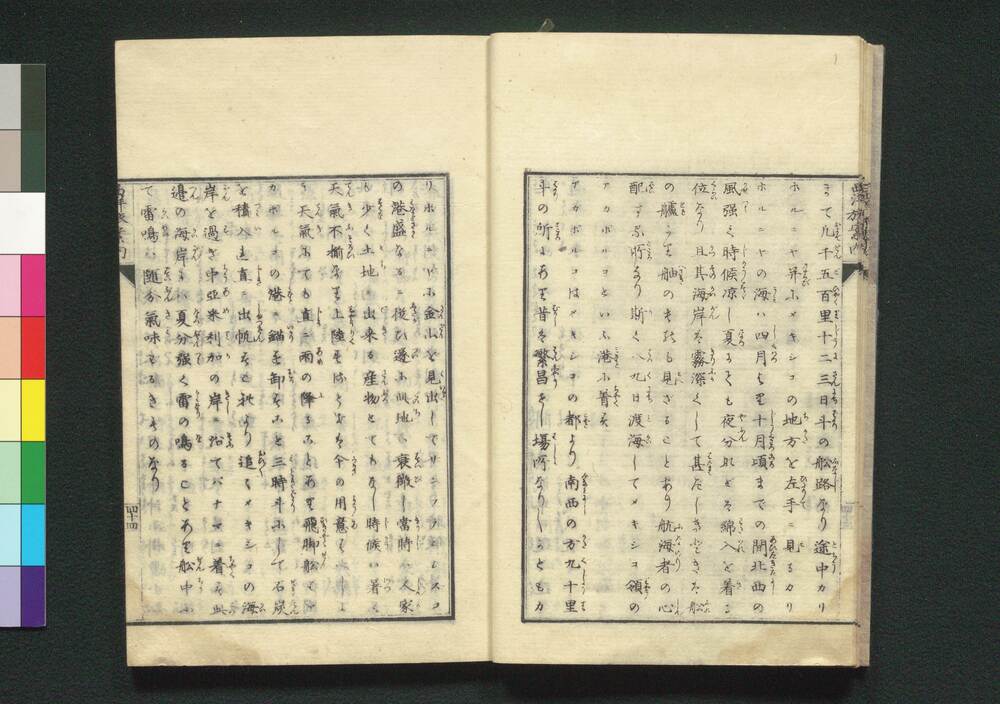 きて凡千五百里十二三日斗の船路なり途中カリ
ホルニヤ并にメキシコの地方を左手に見るカリ
ホルニヤの海ハ四月より十月頃までの間北西の
風强く時候凉し夏にても夜分などは綿入を着る
位なり且其海岸は霧深くして甚だしきときは船
の艫より舳のものも見ざることあり航海者の心
配する所なり斯く八九日渡海してメキシコ領の
アカポルコといふ港に着す
アカポルコはメキシコの都より南西の方九十里
斗の所にあり昔は繁昌せし場所なりしかどもカ
リホルニヤに金山を見出してサンフランシスコ
の港盛なるに及び遂に此地ハ衰微し當時ハ人家
も少く土地に出来る産物とてもなし時候ハ暑く
天氣不揃なり上陸するときは傘の用意すべし
天氣にても直に雨の降ることあり飛脚船
カポルコの港に錨を卸すこと三時斗にして石炭
を積入れ直に出帆す是より追々メキシコの海
岸を過ぎ中亞米利加の岸に沿てパナマに着す此
邉の海岸は夏分强く雷の鳴ることあり船中に
て雷鳴ハ隨分氣味わるきものなり
四十四